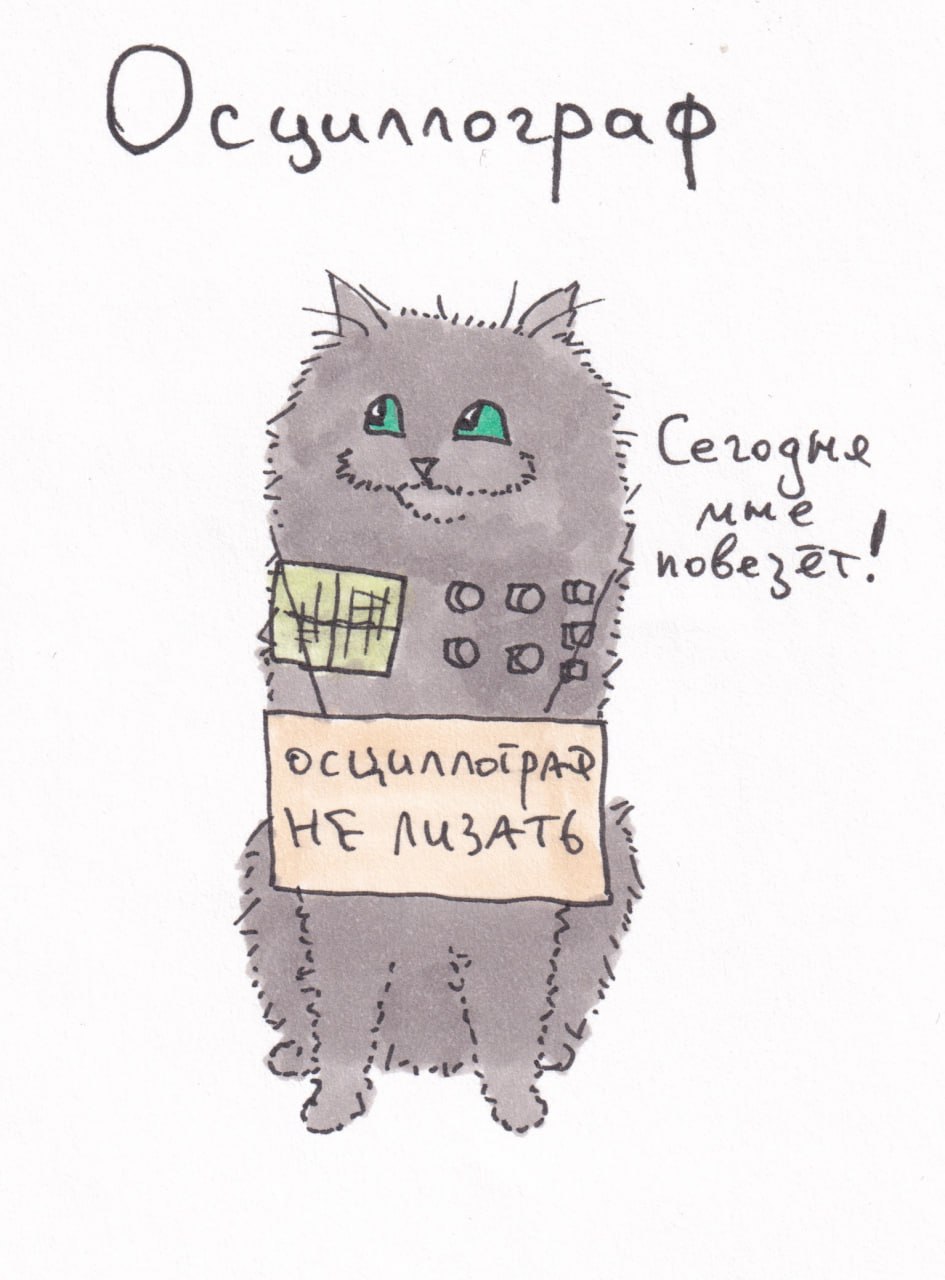 Осциллограф
Сегодня
мне
повезёт!
ОСЦИЛЛОГРАФ
НЕ ЛИЗАТЬ